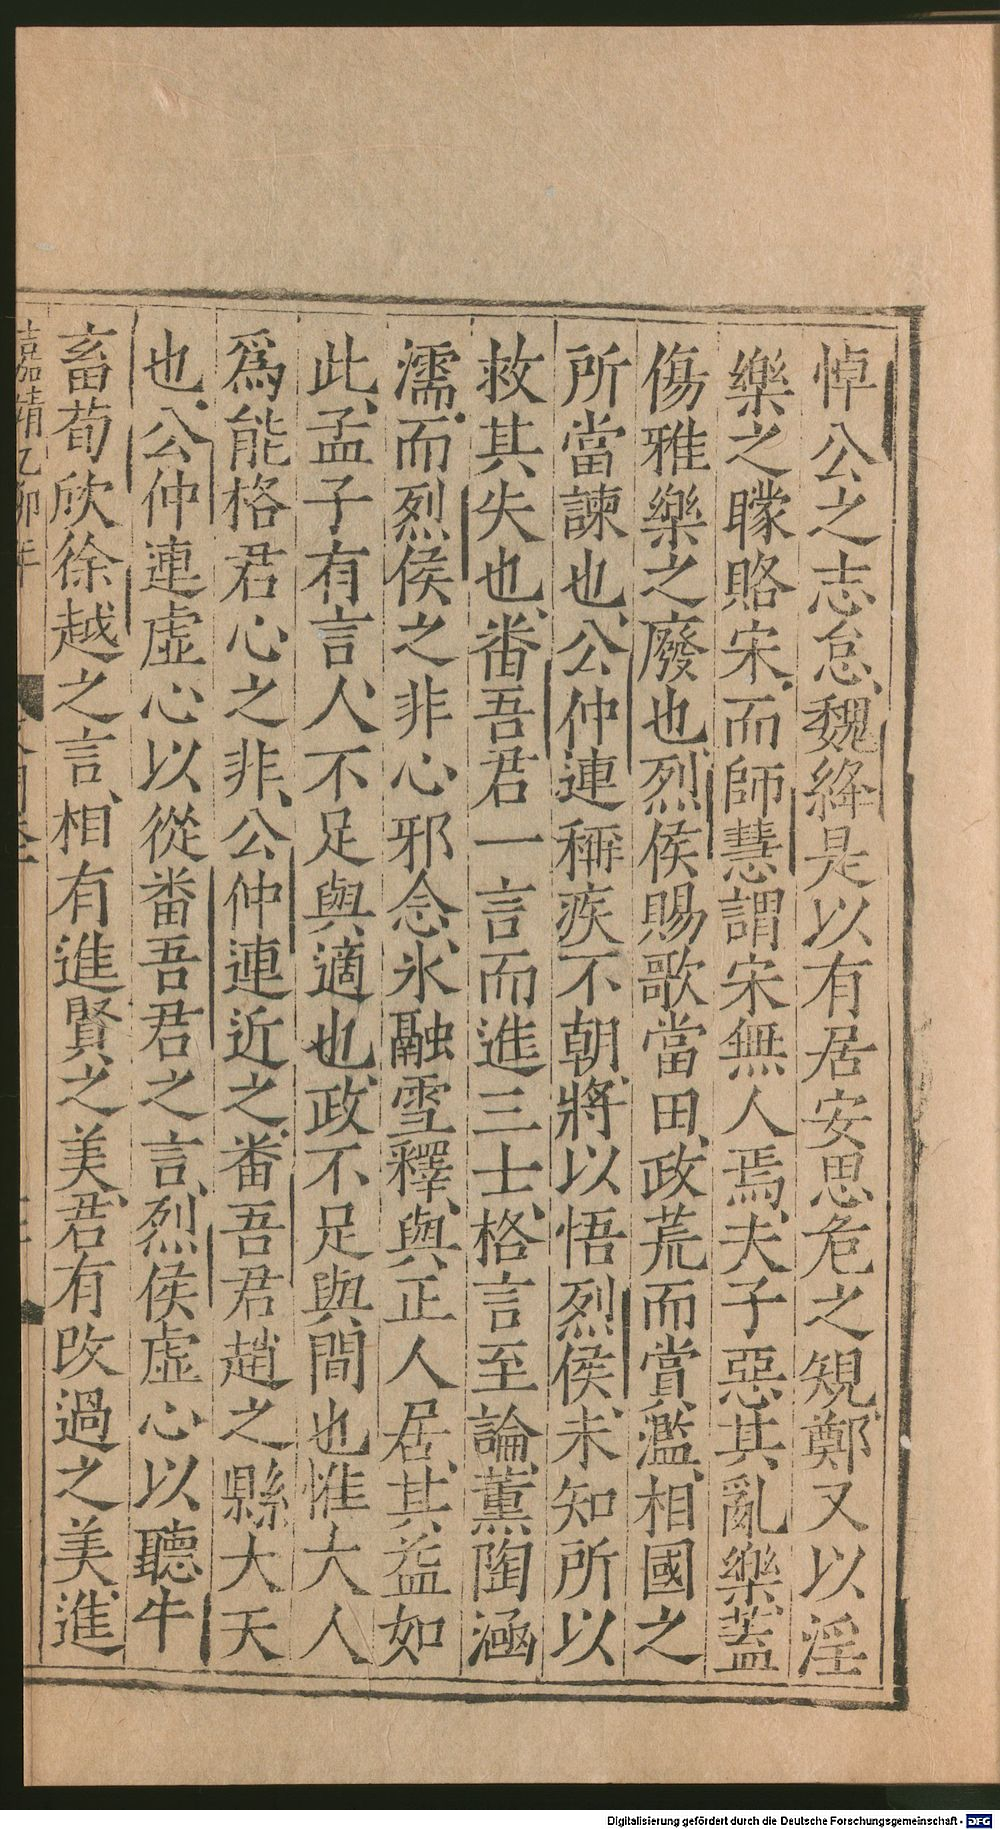 悼公之志怠、魏絳是以有居安思危之規、鄭又以淫
樂之矇賂宋、而師慧謂宋無人焉、夫子惡其亂樂、蓋
傷雅樂之廢也、烈侯賜歌當田、政荒而賞濫、相國之
所當諫也、公仲連稱疾不朝、將以悟烈侯、未知所以
救其失也、番吾君一言而進三士、格言至論、薰陶涵
濡、而烈侯之非心邪念、氷融雪釋、與正人居、其益如
此、孟子有言、人不足與適也、政不足與間也惟大人
爲能格君心之非、公仲連近之、番吾君趙之縣大夫
也、公仲連虛心以從番吾君之言、烈侯虛心以聽牛
畜荀欣徐越之言、相有進賢之美、君有改過之美、進
嘉靖乙卯年
Digitalisierung gefördert durch die Deutsche Forschungsgemeinschaft - DFG